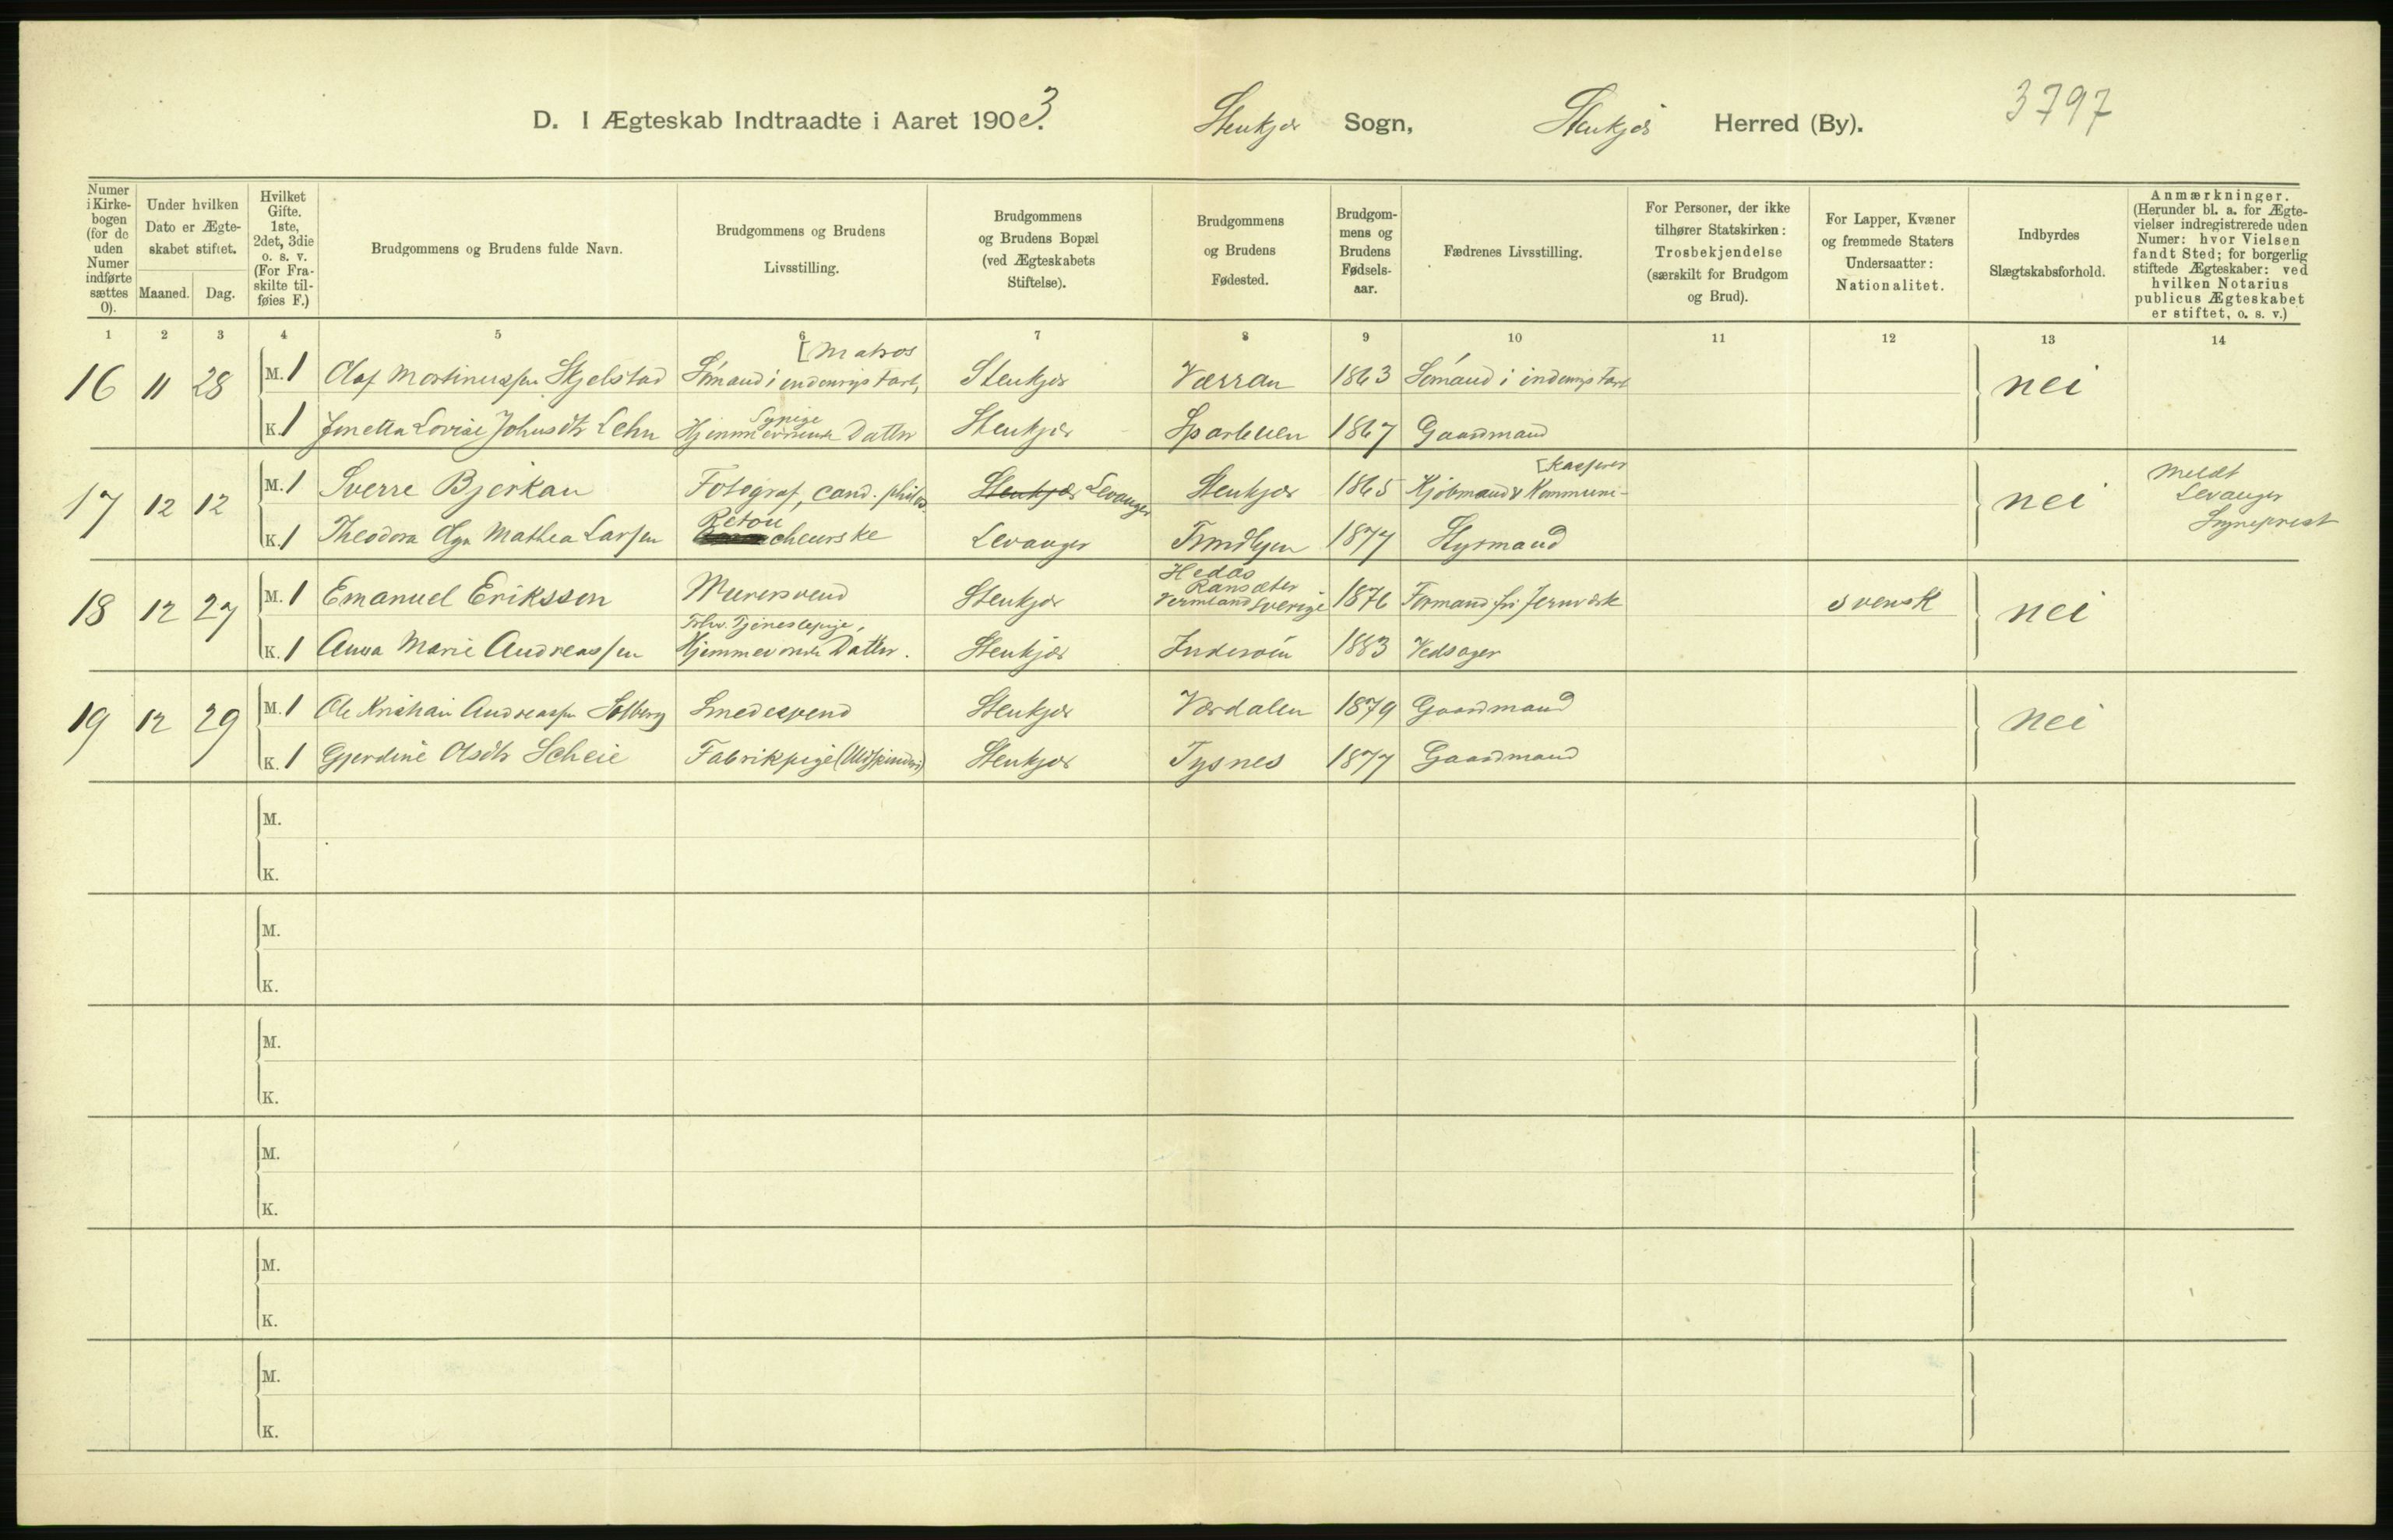 D. I Ægteskab Indtraadte i Aaret 1903. Stenkjær Sogn, Stenkjær Herred (By). 3797
Numer i Kirkebogen (for de uden Numer indførte sættes 0).
Under hvilken Dato er Ægteskabet stiftet.
Maaned. Dag.
Hvilket Gifte. 1ste, 2det, 3die o. s. v. (For Fraskilte tilføies F.)
Brudgommens og Brudens fulde Navn.
Brudgommens og Brudens Livsstilling.
Brudgommens og Brudens Bopæl (ved Ægteskabets Stiftelse).
Brudgommens og Brudens Fødested.
Brudgommens og Brudens Fødselsaar.
Fædrenes Livsstilling.
For Personer, der ikke tilhører Statskirken: Trosbekjendelse (særskilt for Brudgom og Brud).
For Lapper, Kvæner og fremmede Staters Undersaatter: Nationalitet.
Indbyrdes Slægtskabsforhold.
Anmærkninger. (Herunder bl. a. for Ægtevielser indregistrerede uden Numer: hvor Vielsen fandt Sted; for borgerlig stiftede Ægteskaber: ved hvilken Notarius publicus Ægteskabet er stiftet, o. s. v.)
1 2 3 4 5 6 7 8 9 10 11 12 13 14
[Matros
16 11 28 M. 1 Olaf Martinussen Skjelstad Sömand i indenrigs Fart, Stenkjær Værran 1863 Sömand i indenrigs Fart nei
Sypige
K. 1 Jinetta Lovise Johnsdtr Lehn Hjemmeværende Datter Stenkjær Sparbuen 1867 Gaardmand
[kasserer
17 12 12 M. 1 Sverre Bjerkan Fotograf, cand. philos. Stenkjær Levanger Stenkjær 1865 Kjöbmand & Kommune- nei Meldt Levanger Sogneprest
Retou
K. 1 Theodora Olga Mathea Larsen cheurske Levanger Trondhjem 1877 Styrmand
Hedås
Ransäter
18 12 27 M. 1 Emanuel Eriksson Murersvend Stenkjær Vermland Sverige 1876 Formand fri Jernværk svensk nei
Tjenestepige,
K. 1 Anna Marie Andreassen Hjemmevorende Datter. Stenkjær Inderöen 1883 Vedsager
19 12 29 M. 1 Ole Kristian Andreassen Solberg Smedesvend Stenkjær Værdalen 1879 Gaardmand nei
K. 1 Gjerdine Olsdtr Scheie Fabrikpige (Uldspinderi) Stenkjær Tysnes 1877 Gaardmand
M.
K.
M.
K.
M.
K.
M.
K.
M.
K.
M.
K.